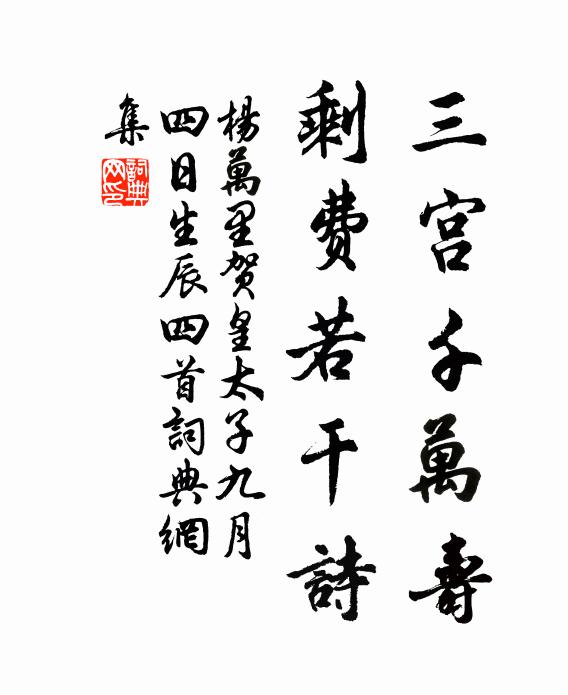 三宮千萬壽
剩費若干詩
楊萬里賀皇太子九月
四日生辰四首詞典網
集
詞典
网印